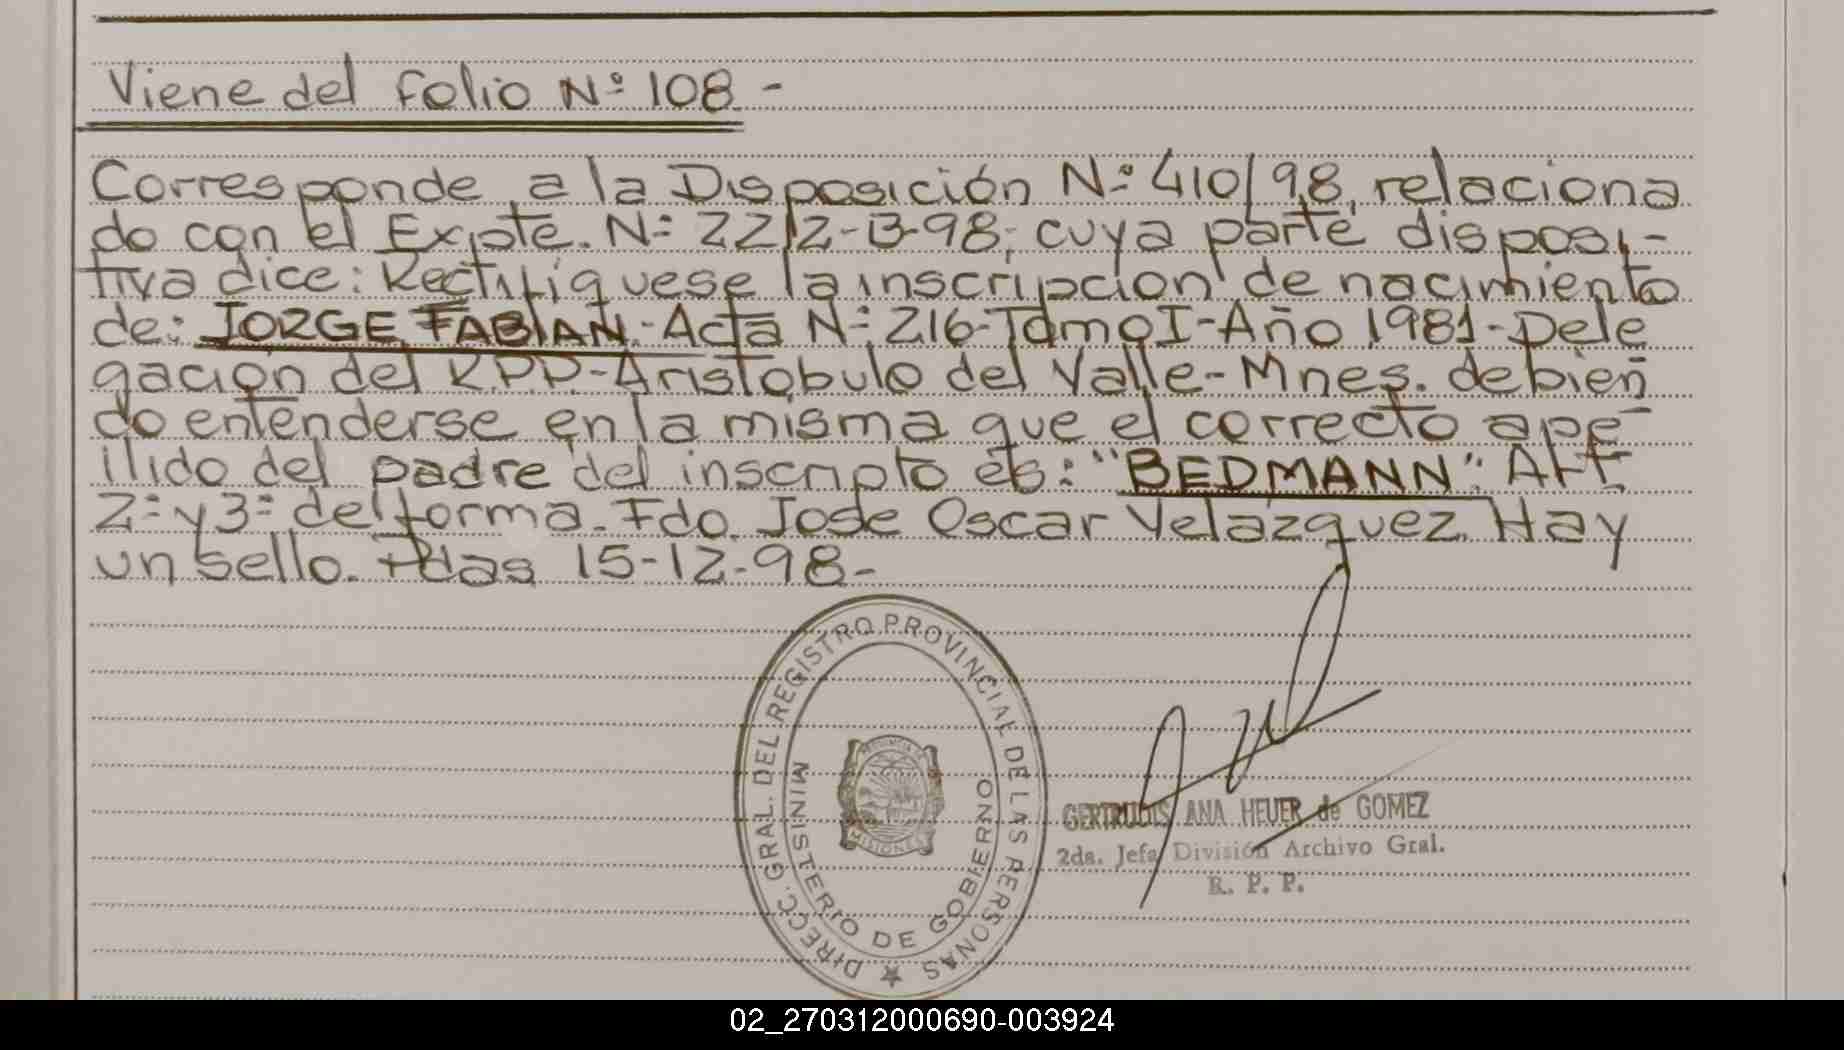 Viene del folio Nº 108 -
Corresponde a la Disposición Nº 410/98, relaciona
do con el Expte. Nº 2212-B-98; cuya parte disposi-
tiva dice: Rectifíquese la inscripcion de nacimiento
de: JORGE FABIAN.- Acta Nº 216-Tomo I-Año 1981-Dele
gación del R.P.P-Aristobulo del Valle-Mnes. debien
do entenderse en la misma que el correcto ape-
llido del padre del inscripto es: "BEDMANN". Art
2º y 3º de forma. Fdo. Jose Oscar Velazquez. Hay
un sello. Pdas 15-12-98-
DIRECC. GRAL. DEL REGISTRO PROVINCIAL DE LAS PERSONAS
MINISTERIO DE GOBIERNO
PROVINCIA DE
MISIONES
GERTRUDIS ANA HEUER de GOMEZ
2da. Jefa División Archivo Gral.
R. P. P.
02_270312000690-003924